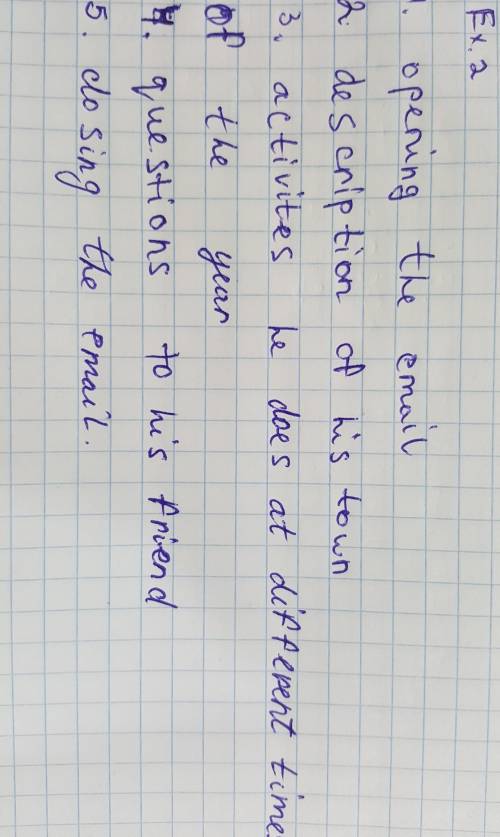 Ex. 2
1. opening the email
2. description of his town
3. activites he does at different time
of the year
4. questions to his friend
5. closing the email.